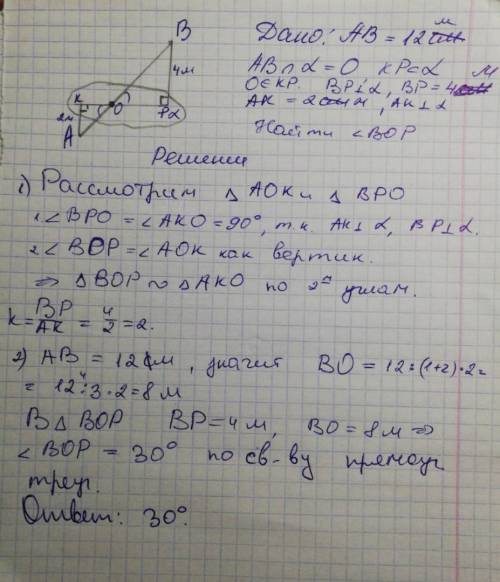 B
4м
K
O
Pα
2м
A
Дано: AB = 12 м
AB ∩ α = O KP ⊂ α
O ∈ KP. BP ⊥ α, BP = 4 м
AK = 2 м, AK ⊥ α
Найти ∠BOP
Решении
1) Рассмотрим △ AOK и △ BPO
1 ∠BPO = ∠AKO = 90°, т.к. AK ⊥ α, BP ⊥ α.
2 ∠BOP = ∠AOK как вертик.
⇒ △BOP ~ △AKO по 2м углам.
k = BP/AK = 4/2 = 2.
2) AB = 12 м, значит BO = 12 : (1+2) · 2 =
= 12 : 3 · 2 = 8 м
В △ BOP BP = 4 м, BO = 8 м ⇒
∠BOP = 30° по св-ву прямоуг
треуг.
Ответ: 30°.